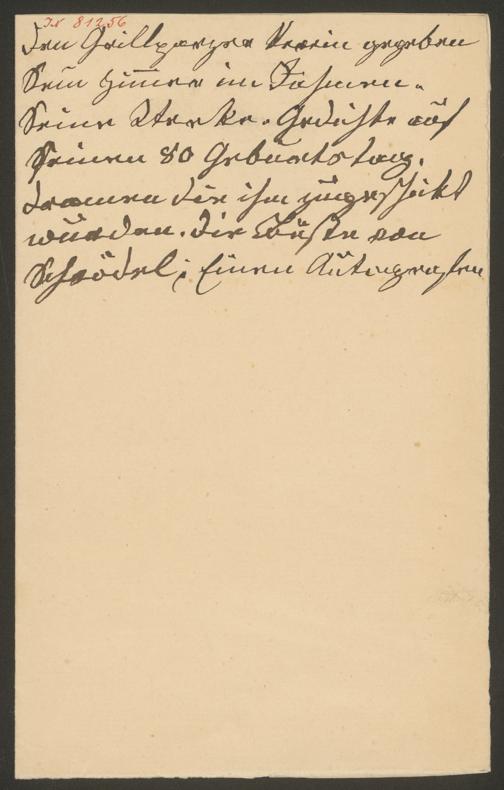 I.N 81256
Den Grillparzer Verein gegeben
Sein Zimmer im Rahmen.
Seine Werke. Gedichte auf
Seinen 80 Geburtstag.
Dramen die ihm zugeschikt
wurden. Die Büste von
Schrödel; Einen Autografen